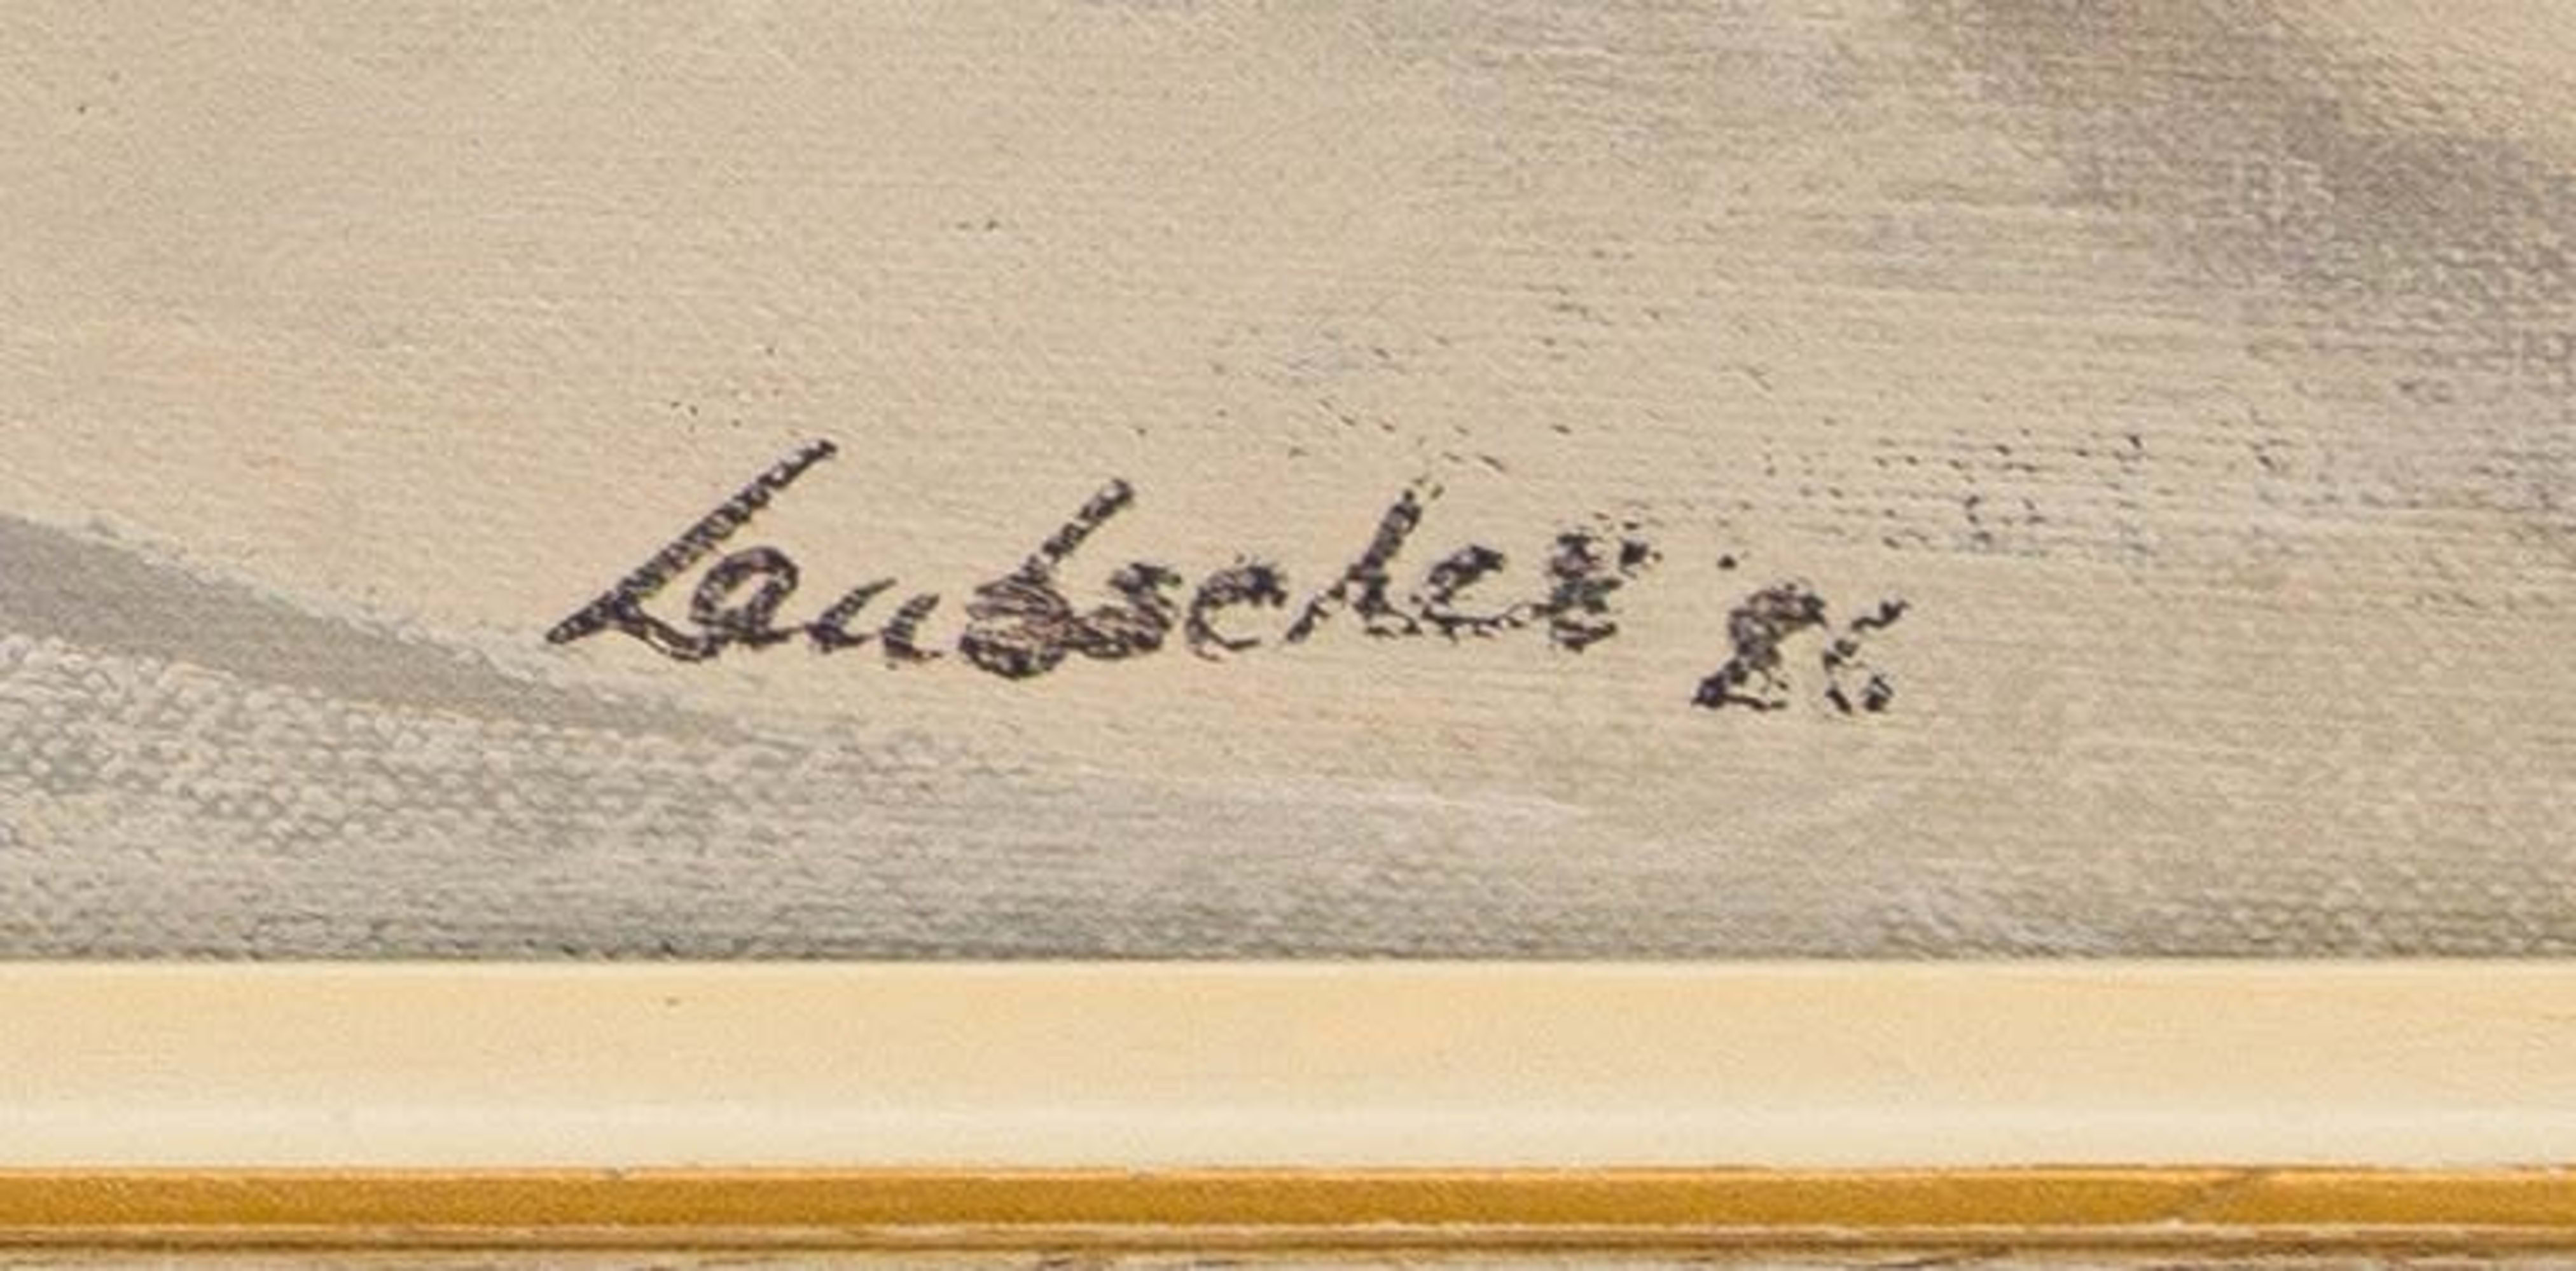 Laubscher 86